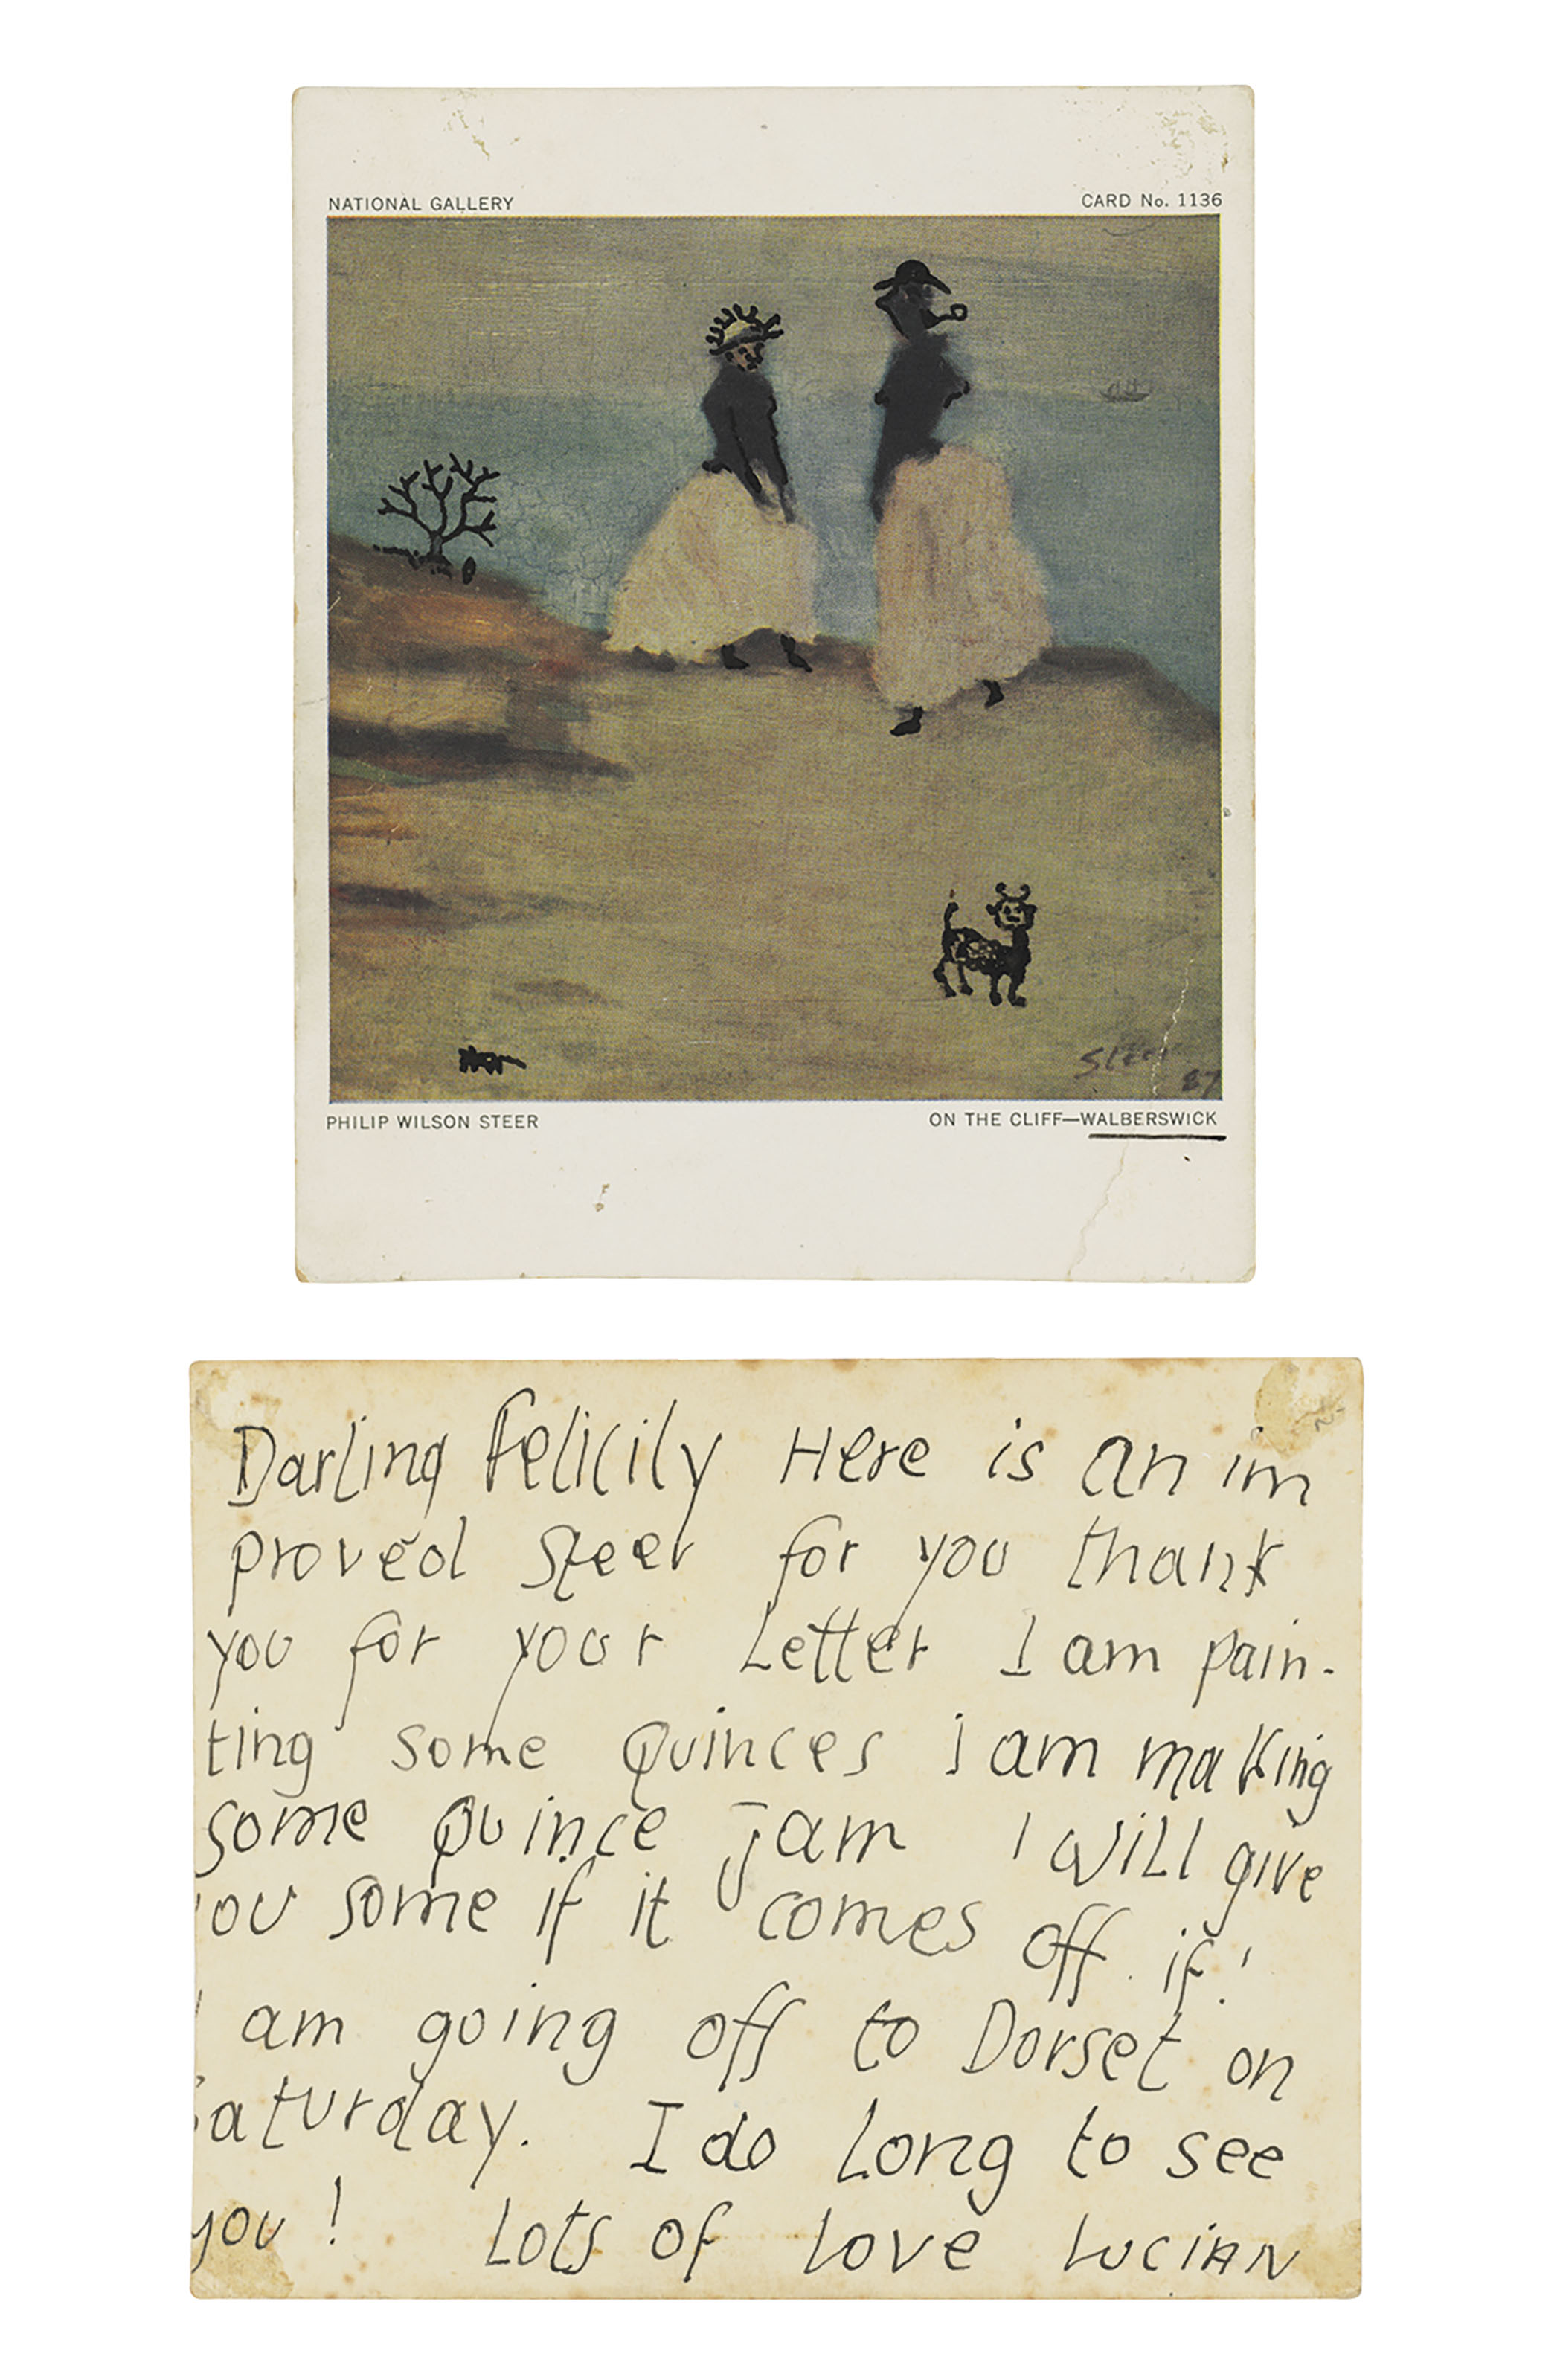 NATIONAL GALLERY
CARD No. 1136
Steer
87
PHILIP WILSON STEER
ON THE CLIFF—WALBERSWICK
Darling Felicity Here is an im
proved Steer for you thank
you for your Letter I am pain-
ting some quinces i am making
some quince jam I will give
you some if it comes off. if!
I am going off to Dorset on
Saturday. I do Long to see
you! Lots of Love LUCIAN